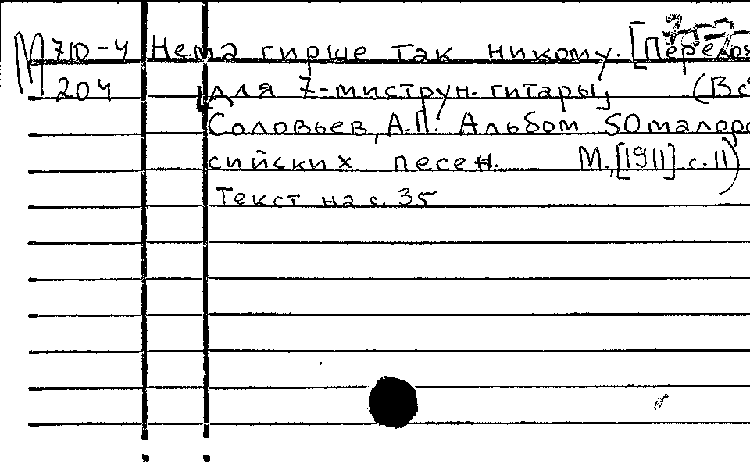 М 710-4 Нема гирше так никому. [Перелож
204 для 7-миструн. гитары] (Вс
Соловьев, А.П. Альбом 50 малорос
сийских песен. М., [1911] с. 11)
Текст на с. 35